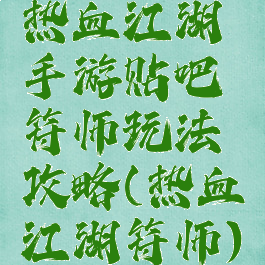 热血江湖
手游贴吧
符师玩法
攻略(热血
江湖符师)